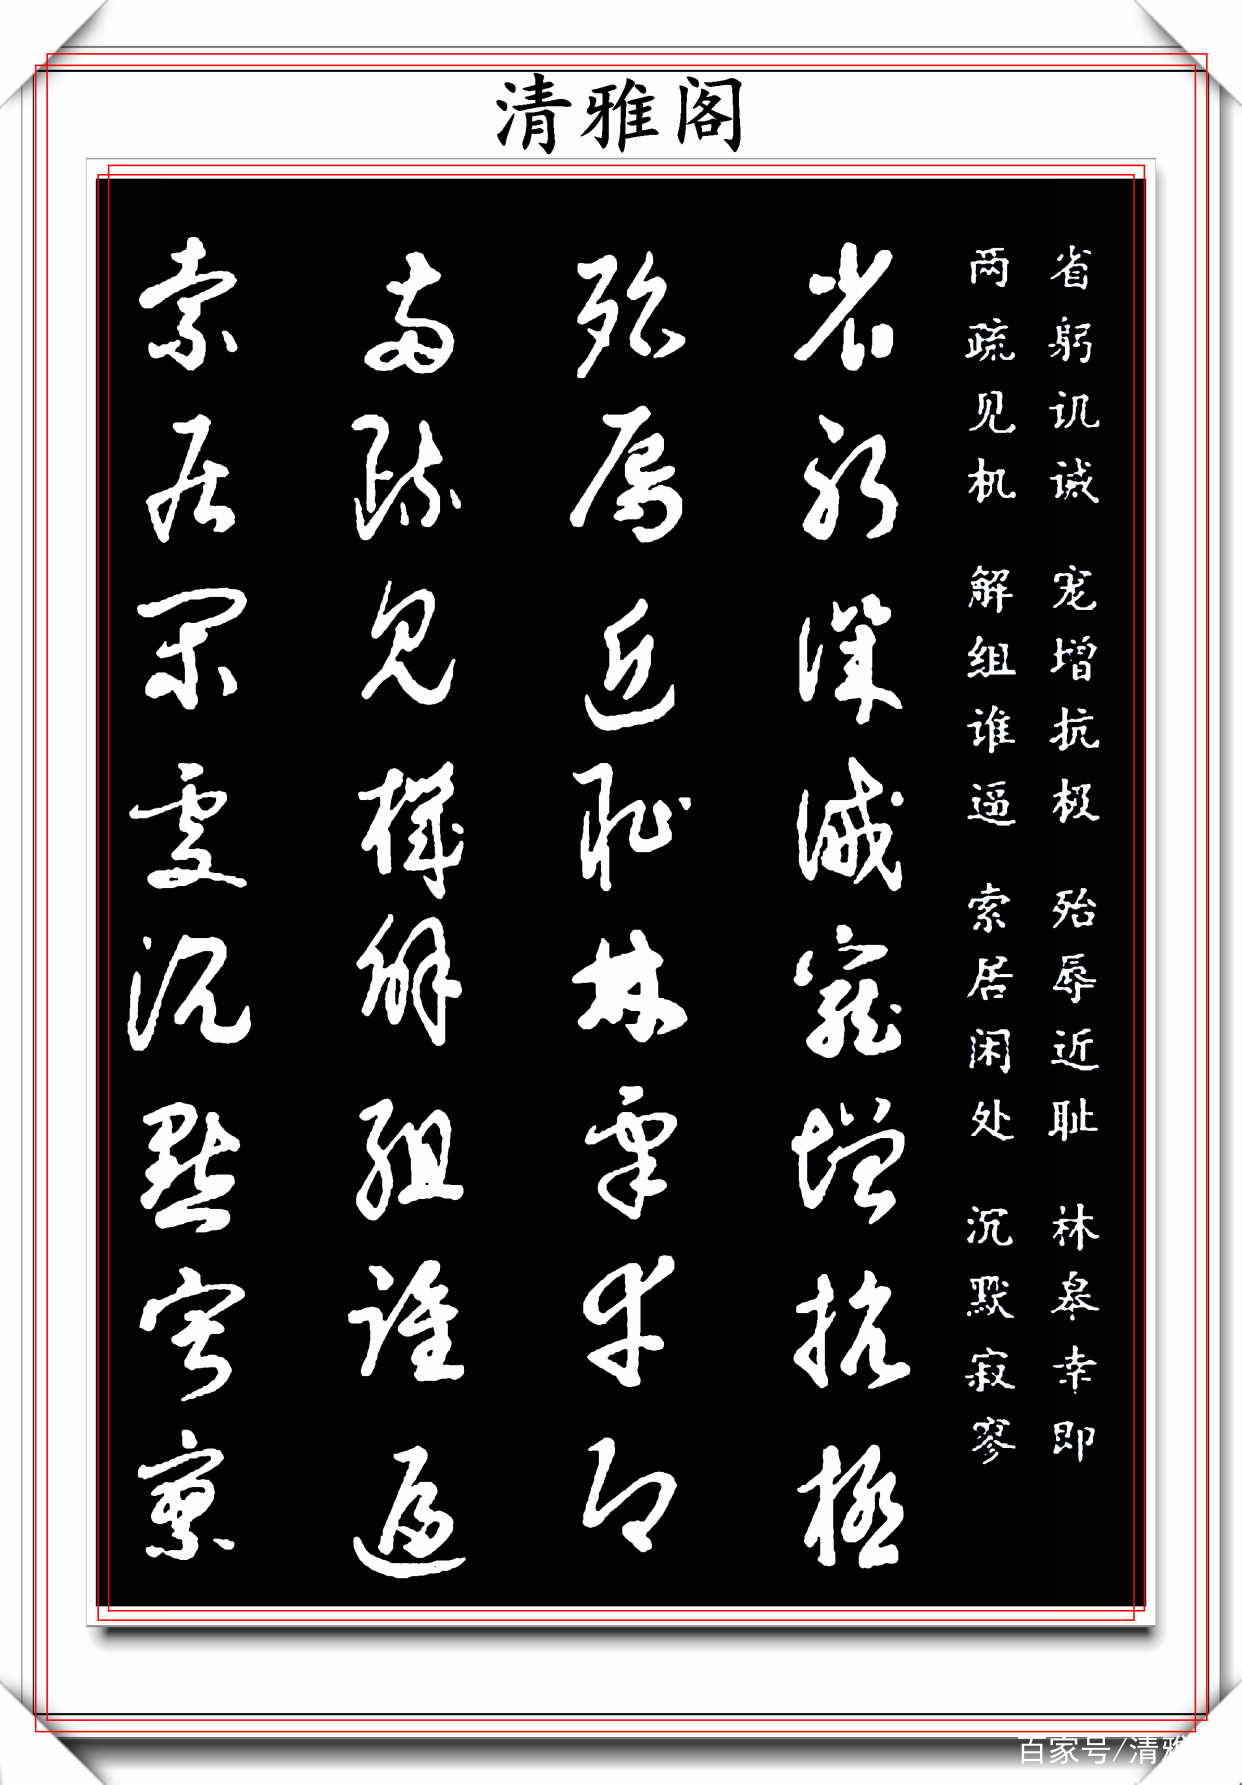 清雅阁
省躬讥诫 宠增抗极 殆辱近耻 林皋幸即
两疏见机 解组谁逼 索居闲处 沉默寂寥
省躬讥诫宠增抗极
殆辱近耻林皋幸即
两疏见机解组谁逼
索居闲处沉默寂寥
百家号/清雅